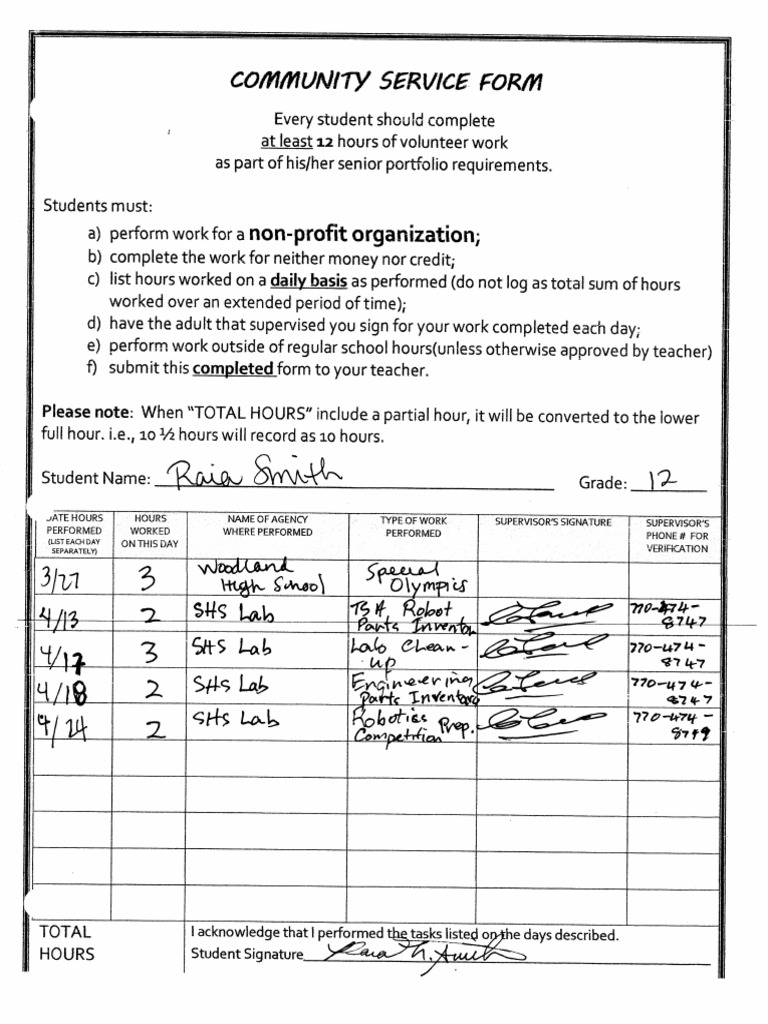 COMMUNITY SERVICE FORM
Every student should complete
at least 12 hours of volunteer work
as part of his/her senior portfolio requirements.
Students must:
a) perform work for a non-profit organization;
b) complete the work for neither money nor credit;
c) list hours worked on a daily basis as performed (do not log as total sum of hours
worked over an extended period of time);
d) have the adult that supervised you sign for your work completed each day;
e) perform work outside of regular school hours(unless otherwise approved by teacher)
f) submit this completed form to your teacher.
Please note: When "TOTAL HOURS" include a partial hour, it will be converted to the lower
full hour. i.e., 10 ½ hours will record as 10 hours.
Student Name: Raia Smith Grade: 12
DATE HOURS
PERFORMED
(LIST EACH DAY
SEPARATELY)
HOURS
WORKED
ON THIS DAY
NAME OF AGENCY
WHERE PERFORMED
TYPE OF WORK
PERFORMED
SUPERVISOR'S SIGNATURE
SUPERVISOR'S
PHONE # FOR
VERIFICATION
3/27
3
Woodland
High School
Special
Olympics
4/13
2
SHS Lab
TSA Robot
Parts Inventory
770-474-
8747
4/17
3
SHS Lab
Lab Clean-
up
770-474-
8747
4/18
2
SHS Lab
Engineering
Parts Inventory
770-474-
8747
4/24
2
SHS Lab
Robotics
Competition Prep.
770-474-
8749
TOTAL
HOURS
I acknowledge that I performed the tasks listed on the days described.
Student Signature